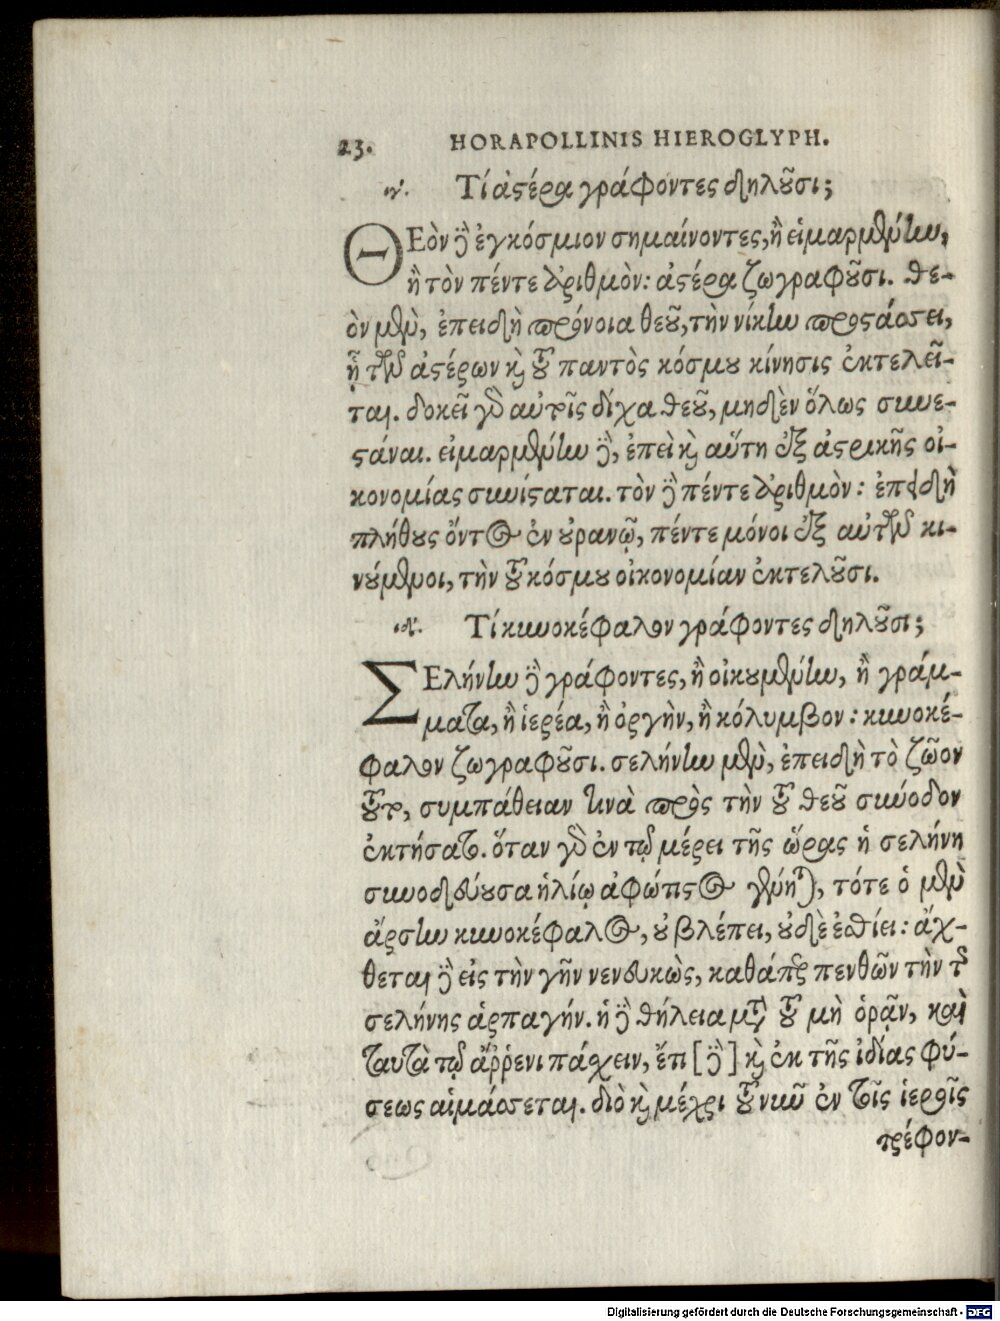 23. HORAPOLLINIS HIEROGLYPH.
ιγ. Τί ἀϛέρα γράφοντες δηλοῦσι;
ΘΕὸν δὲ ἐγκόσμιον σημαίνοντες, ἢ εἱμαρμένην,
ἢ τὸν πέντε ἀριθμὸν: ἀϛέρα ζωγραφοῦσι. θε-
ὸν μὲν, ἐπειδὴ πρόνοια θεοῦ, τὴν νίκην προςάσσει,
ᾗ τῶν ἀϛέρων καὶ τοῦ παντὸς κόσμου κίνησις ἐκτελεῖ-
ται. δοκεῖ γὰρ αὐτοῖς δίχα θεοῦ, μηδὲν ὅλως συνε-
ϛάναι. εἱμαρμένην δὲ, ἐπεὶ καὶ αὕτη ἐξ ἀϛρικῆς οἰ-
κονομίας συνίϛαται. τὸν δὲ πέντε ἀριθμὸν: ἐπειδὴ
πλήθους ὄντος ἐν οὐρανῷ, πέντε μόνοι ἐξ αὐτῶν κι-
νούμενοι, τὴν τοῦ κόσμου οἰκονομίαν ἐκτελοῦσι.
ιδ. Τί κυνοκέφαλον γράφοντες δηλοῦσι;
ΣΕλήνην δὲ γράφοντες, ἢ οἰκουμένην, ἢ γράμ-
ματα, ἢ ἱερέα, ἢ ὀργὴν, ἢ κόλυμβον: κυνοκέ-
φαλον ζωγραφοῦσι. σελήνην μὲν, ἐπειδὴ τὸ ζῶον
τοῦτο, συμπάθειαν τινὰ πρὸς τὴν τοῦ θεοῦ σύνοδον
ἐκτήσατο. ὅταν γὰρ ἐν τῷ μέρει τῆς ὥρας ἡ σελήνη
συνοδεύουσα ἡλίῳ ἀφώτιστος γένηται, τότε ὁ μὲν
ἄρσην κυνοκέφαλος, οὐ βλέπει, οὐδὲ ἐσθίει: ἄχ-
θεται δὲ εἰς τὴν γῆν νενευκὼς, καθάπερ πενθῶν τὴν τῆς
σελήνης ἁρπαγήν. ἡ δὲ θήλεια μετὰ τοῦ μὴ ὁρᾷν, καὶ
ταυτὰ τῷ ἄῤῥενι πάσχειν, ἔτι [δὲ] καὶ ἐκ τῆς ἰδίας φύ-
σεως αἱμάσσεται. διὸ καὶ μέχρι τοῦ νῦν ἐν τοῖς ἱεροῖς
τρέφον-
Digitalisierung gefördert durch die Deutsche Forschungsgemeinschaft - DFG